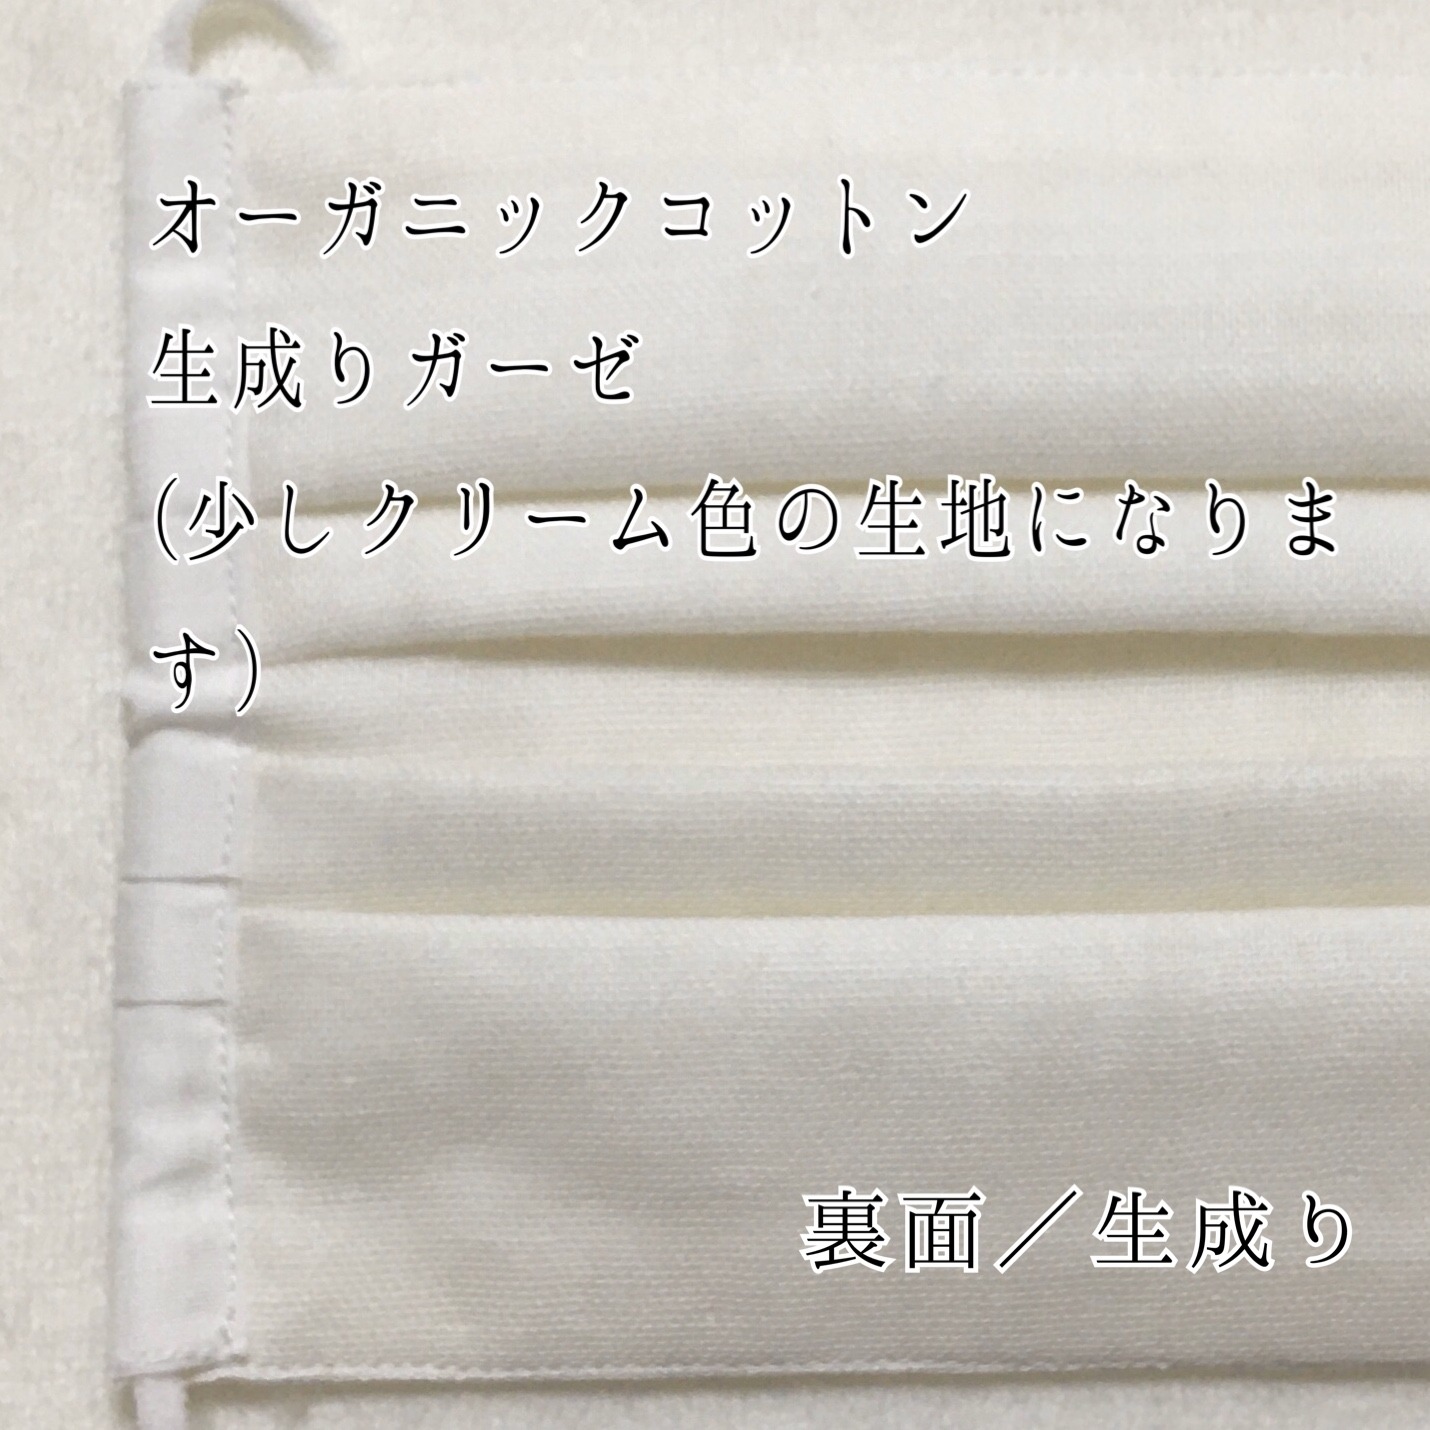 オーガニックコットン
生成りガーゼ
(少しクリーム色の生地になりま
す)
裏面／生成り